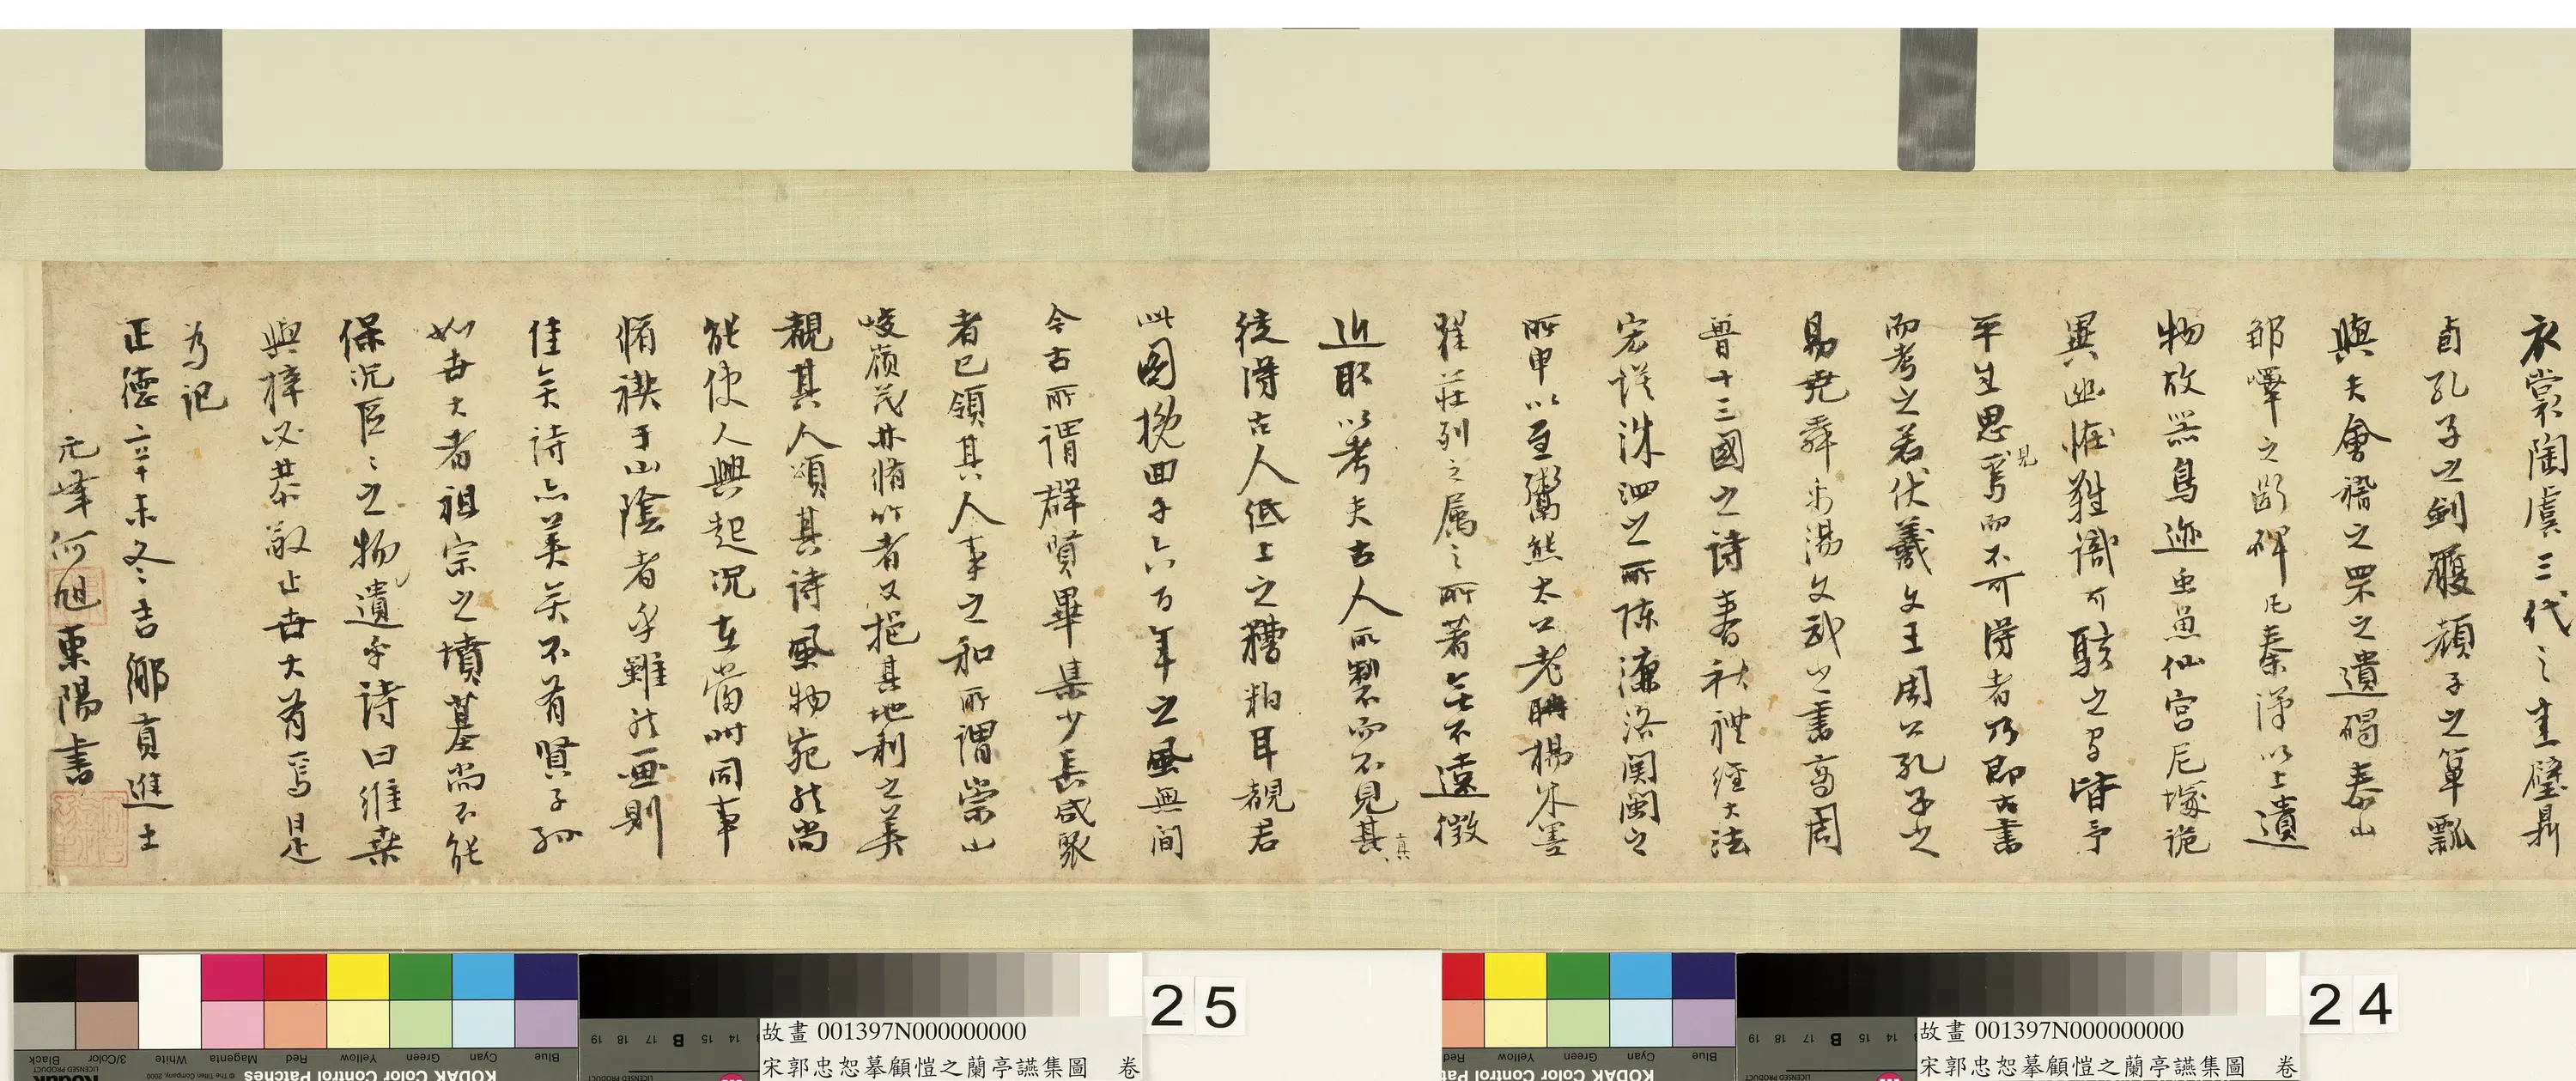 衣裳陶虞三代之圭璧鼎
卣孔子之劍履顏子之簞瓢
與夫會稽之罘之遺碣泰山
鄒嶧之斷碑凡秦漢以上遺
物故器鳥迹虫魚仙宮尼壙詭
異幽恠難識可駭之寫皆予
平生思見焉而不可得者乃即古書
而考之若伏羲文王周公孔子之
易堯舜禹湯文武之書商周
曾十三國之詩春秋禮經大法
宏謨洙泗之所陳濂洛関閩之
所申以至鬻熊太公老聃楊朱墨
翟莊列之属之所著無不遠徵
近取以考夫古人所製而不見其真
徒得古人低上之糟粕耳覩君
此图挽回千六百年之風無間
今古所謂群賢畢集少長咸聚
者已領其人事之和所謂崇山
峻嶺茂林脩竹者又挹其地利之美
覩其人頌其詩風物宛然尚
能使人興起况在當時同事
脩禊于山陰者乎雖然画則
佳矣詩亦美矣不有賢子孫
如世大者祖宗之墳墓尚不能
保况區〻之物遺乎詩曰維桑
與梓必恭敬止世大有焉是
为記
正德辛未冬吉鄉貢進士
元峰何旭東陽書
25
24
故畫 001397N000000000
宋郭忠恕摹顧愷之蘭亭讌集圖 卷
故畫 001397N000000000
宋郭忠恕摹顧愷之蘭亭讌集圖 卷
Blue Cyan Green Yellow Red Magenta White 3/Color Black
KODAK Color Control Patches
14 15 B 17 18 19
Blue Cyan Green Yellow Red
KODAK Color Control Pat
14 15 B 17 18 19